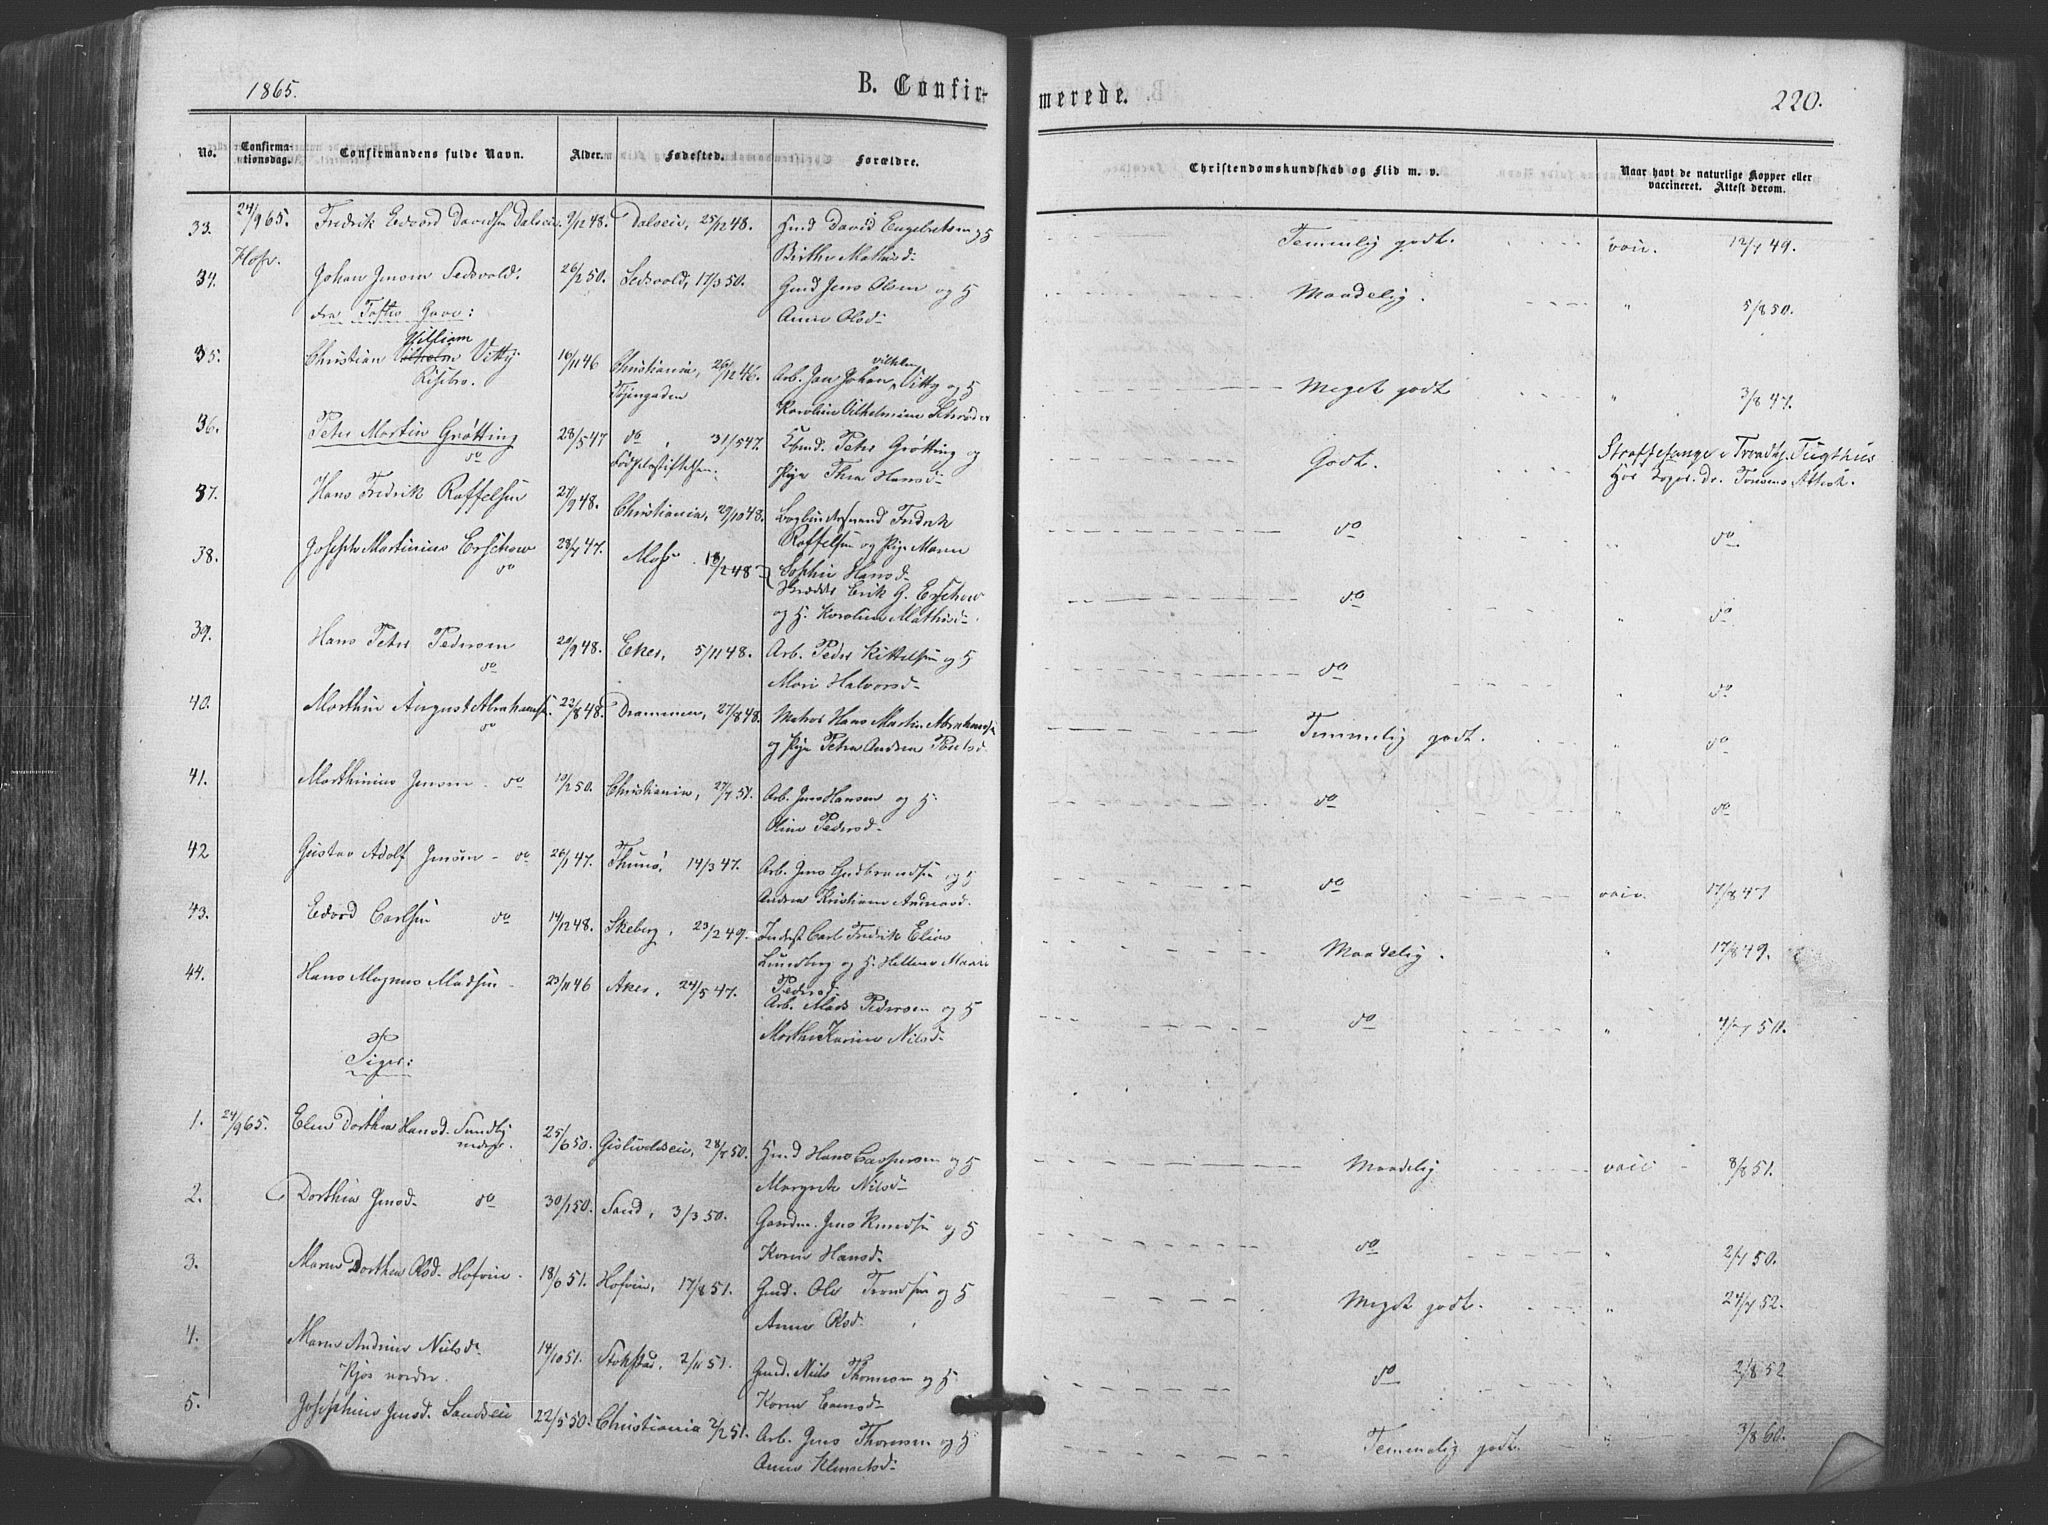 1865.
B. Confir-
merede.
220.
No.
Confirma-
tionsdag.
Confirmandens fulde Navn.
Alder.
Fødested.
Forældre.
Christendomskundskab og Flid m. v.
Naar havt de naturlige Kopper eller
vaccineret. Attest derom.
33. 24/9 65. Fredrik Edvard Davidsen Dalseie. 9/12 48. Dalseie, 25/12 48. Hmd David Engebretsen og H Temmelig godt. vacc. 12/7 49.
Hof. Birthe Mathisd.
34. Johan Jensen Sedsvold. 26/2 50. Sedsvold, 17/3 50. Gmd Jens Olsen og H Maadelig. " 5/8 50.
fra Toftes Gave: Anne Olsd.
William
35. Christian Vilhelm Vitty. 16/11 46 Christiania, 26/12 46. Arb. Jan Johan Vilhelm Vitty og H Meget godt " 3/8 47.
Risebro. Tøiengaden Karoline Vilhelmine Schrøder
36. Peter Martin Grøtting 28/5 47 do, 31/5 47. Peter Grøtting og Godt. Straffefange i Trondhj. Tugthus
do Fødselsstiftelsen. Pige Thea Hansd. Attest.
37. Hans Fredrik Roffelsen 27/9 48. Christiania, 29/10 48. Bogbindersvend Fredrik do " do
Roffelsen og Pige Maren
Sophie Hansd.
38. Joseph Martinius Erschow 28/7 47. Moss 18/2 48 Skrædder Erik G. Erschow do " do
do og H. Karoline Mathisd.
39. Hans Peter Pedersen 20/9 48. Eker, 5/11 48. Arb. Peder Kittelsen og H do " do
do Mari Halvorsd.
40. Marthin August Abrahamsen 22/8 48. Drammen, 27/8 48. Matros Hans Martin Abrahamsen Temmelig godt. " do
do og Pige Petra Andrea Poulsd.
41. Marthinius Jensen - do 10/2 50. Christiania, 27/7 51. Arb. Jens Hansen og H. do " do
Oline Pedersd.
42 Gustav Adolf Jensen - do 26/1 47. Thunø, 14/3 47. Arb. Jens Gudbrandsen og H do vacc. 17/8 47
Andrea Kristiane
43. Edvard Carlsen do 14/12 48. Skeberg, 23/2 49. Inderst Carl Fredrik Elias Maadelig. " 17/8 49.
Lundberg og H. Hellene Marie
Pedersd.
44. Hans Magnus Madsen - 23/11 46 Aker, 24/5 47. Arb. Mads Pedersen og H do " 4/7 50.
Marthe Karine Nilsd.
Piger:
1. 24/9 65. Elen Dorthea Hansd. Sundby 25/6 50. 28/7 50. Hmd Hans Caspersen og H Maadelig vacc 8/8 51.
nedre. Margrete Nilsd.
2. Dorthea Jensd. do 30/1 50. Sand, 3/3 50. Gaardm. Jens Knudsen og H do " 2/7 50.
Karen Hansd.
3. Maren Dorthea Olsd. Hofvin. 18/6 51. Hofvin, 17/8 51. Gmd. Ole Trondsen og H Meget godt. " 24/7 52.
Anne Olsd.
4. Maren Andrine Nielsd. 14/10 51. Stokstad, 2/11 51. Gmd. Niels Thomesen og H. do " 2/8 52
Kjos nordre. Karen Evensd.
5. Josephine Jensd. Sandseie 22/5 50. Christiania 2/2 51. Arb. Jens Thoresen og H Temmelig godt. " 3/8 60.
Anne Klemetsd.